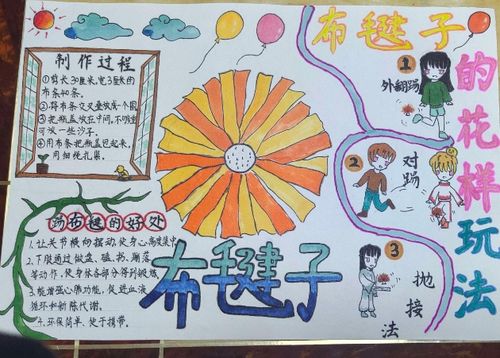 制作过程
①剪长30厘米,宽3厘米的
布条40条。
②将布条交叉叠放每个圆
③把瓶盖放在中间,不够重
可放一些沙子。
④用布条把瓶盖包起来,
用细绳扎紧。
踢布毽的好处
1.让关节横向摆动使身心高度集中
2.下肢通过做盘、磕、拐、蹦落
等动作,使身体各部分得到锻炼
3.能增强心肺功能,促进血液
循环和新陈代谢。
4.环保简单,便于携带。
布毽子
布毽子
的花样玩法
1
外翻踢
2
对踢
3
抛接法